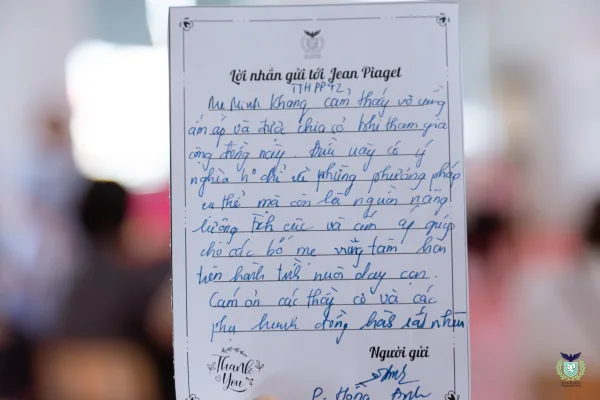 Lời nhắn gửi tới Jean Piaget
THPP42
Mẹ Minh Khang cảm thấy vô cùng
ấm áp và được chia sẻ khi tham gia
cộng đồng này. Điều này có ý
nghĩa k chỉ vì những phương pháp
cụ thể mà còn là nguồn năng
lượng tích cực và ấm áp giúp
cho các bố mẹ vững tâm hơn
trên hành trình nuôi dạy con.
Cảm ơn các thầy cô và các
phụ huynh đồng hành rất nhiều
Người gửi
Thank
You